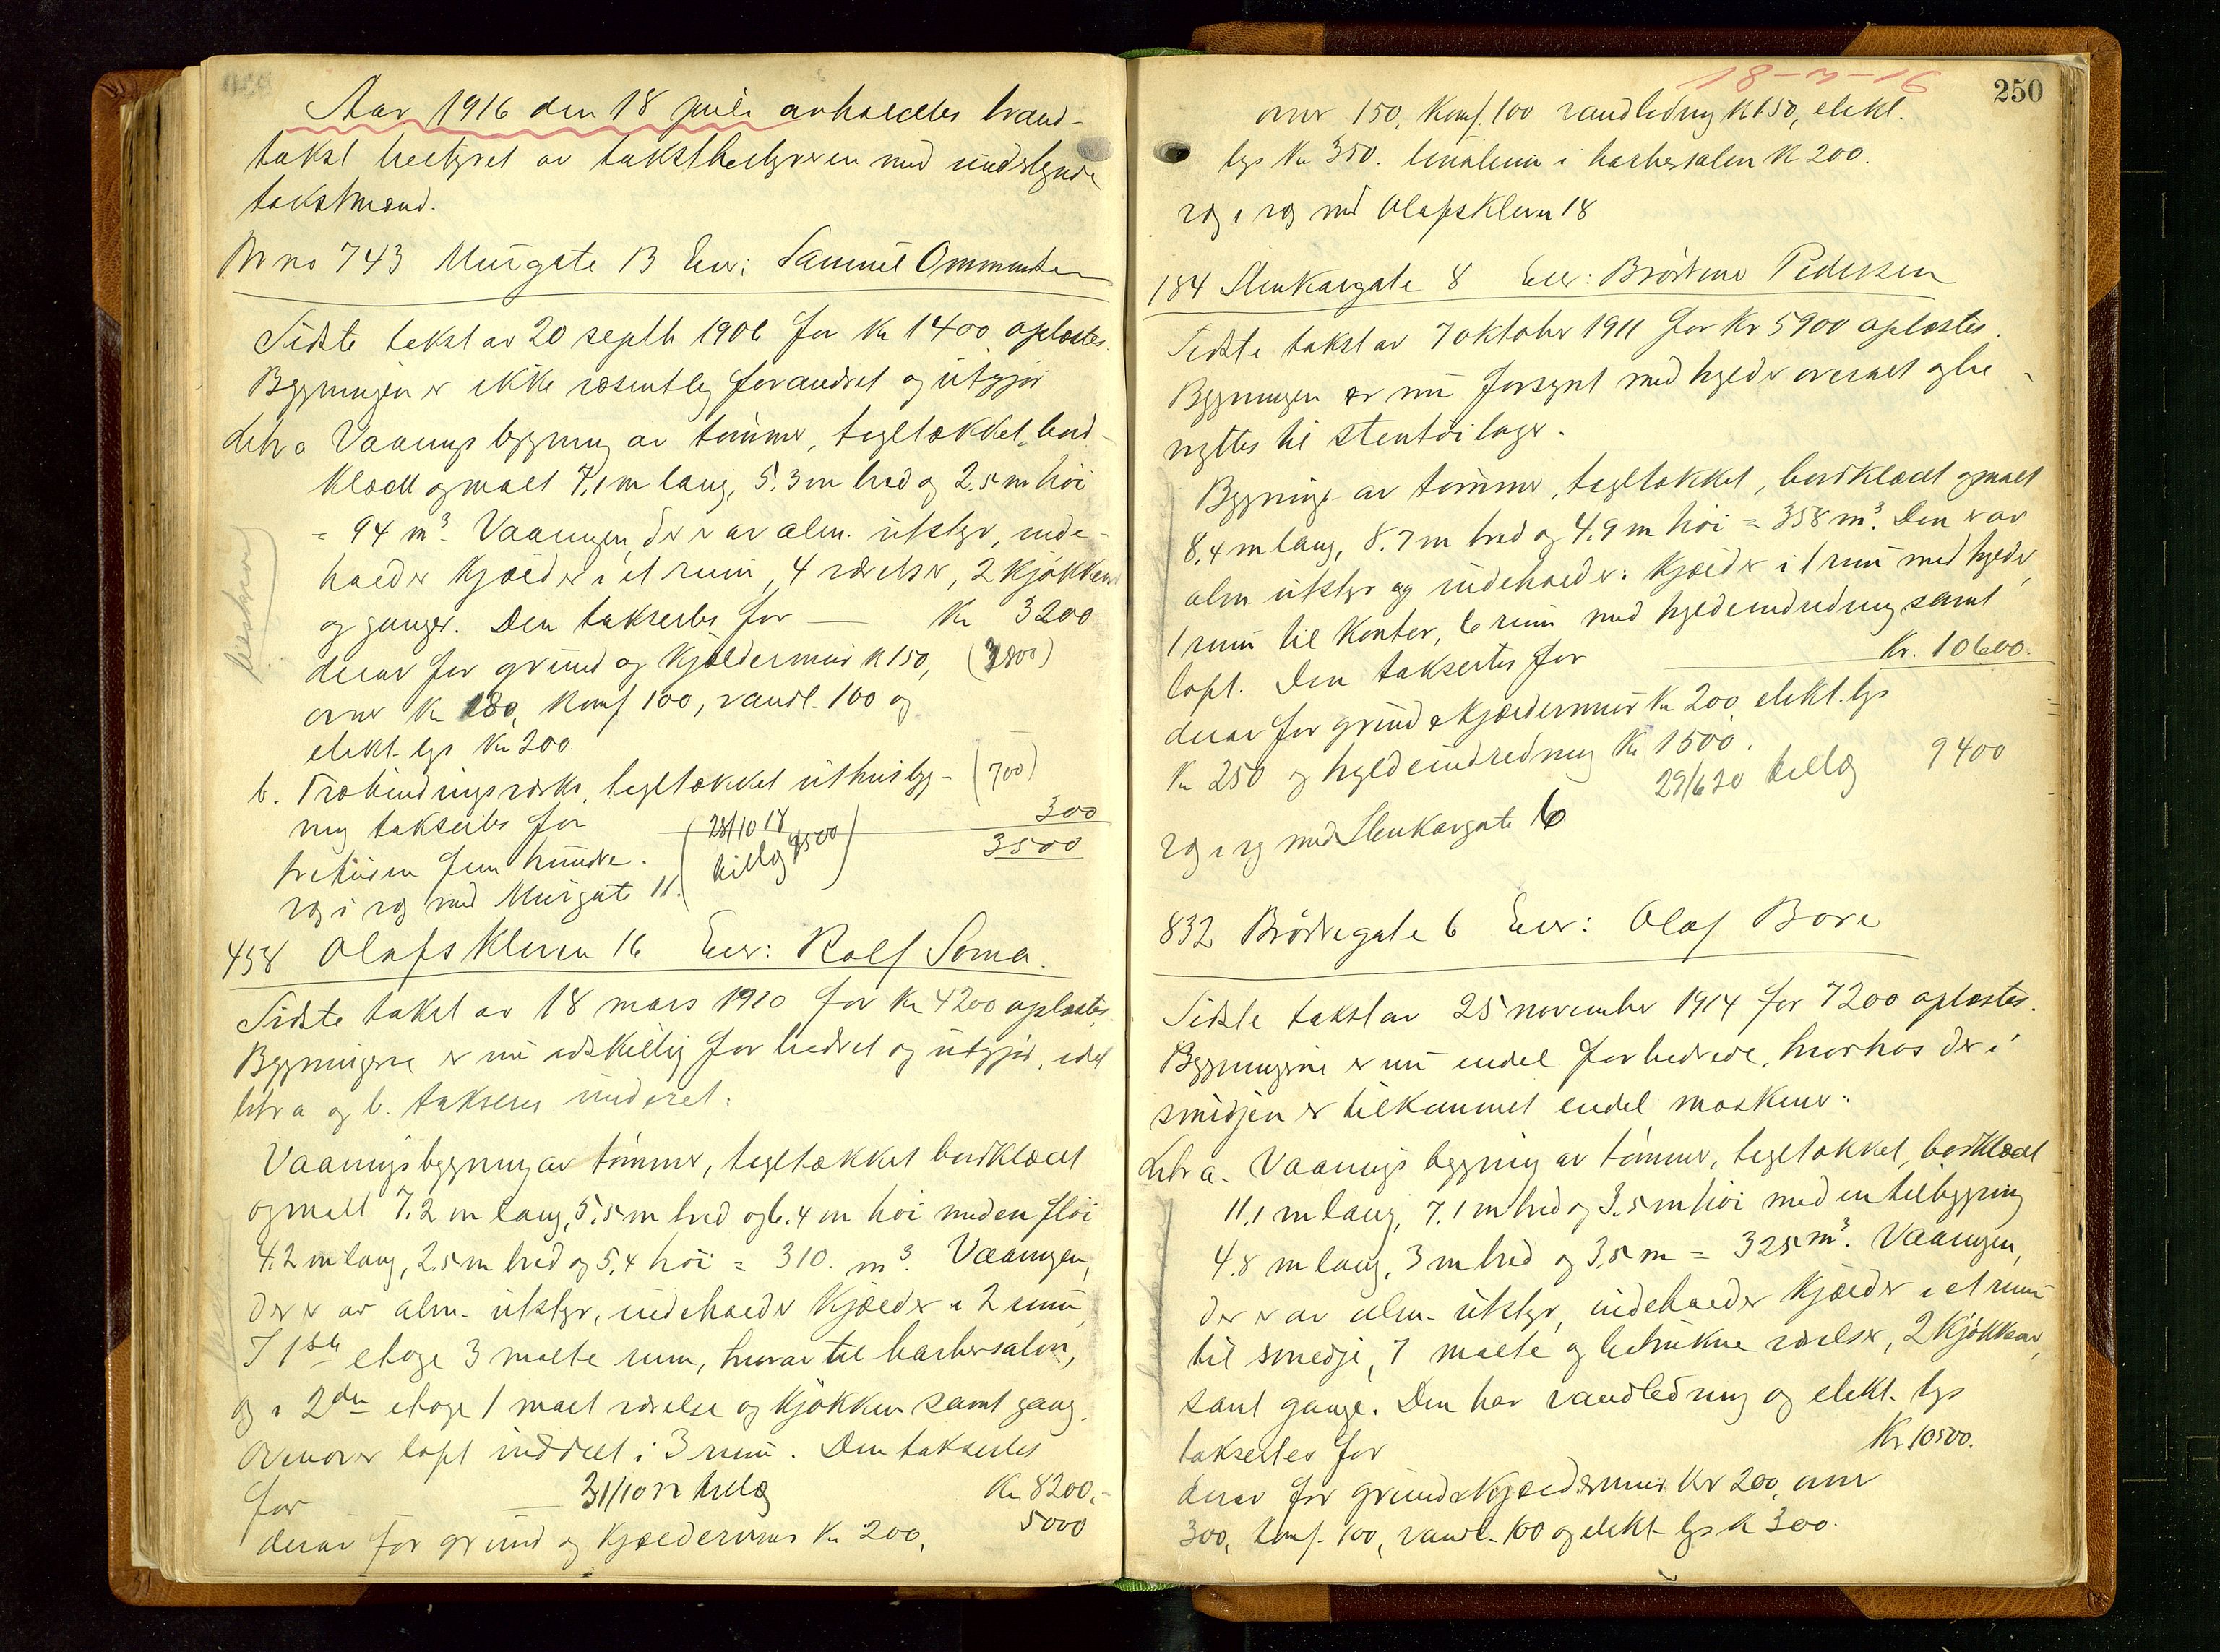 Aar 1916 den 18 juli avholdtes brand-
takst bestyret av takstbestyreren med undertegnede
takstmænd.
Br no 743 Murgate 13 Eier: Samuel Ommundsen
Sidste takst av 20 septb 1906 for Kr 1400 oplæstes.
Bygningen er ikke væsentlig forandret og utgjør
Litr a Vaaningsbygning av tømmer, tegltækket, bord-
klædt og malt 7.1 m lang, 5.3 m bred og 2.5 m høi
= 94 m³. Vaaningen, der er av alm. utstyr, inde-
holder kjælder i et rum, 4 værelser, 2 kjøkkener
og ganger. Den takseres for — Kr 3200
derav for grund og kjældermur K 150, (3800)
ovner Kr 180, komf 100, vandl. 100 og
elekt. lys Kr 200.
b. Træbindingsverks, tegltækket uthusbyg- (700)
ning takseres for 300
(28/10 18 tillæg 9500) 3500
tretusen fem hundre.
væg i væg med Murgate 11.
458 Olafskleven 16 Eier: Rolf Soma.
Sidste takst av 18 mars 1910 for Kr 4200 oplæstes.
Bygningerne er nu adskillig forbedret og utgjør, idet
litr a og b. takseres under et:
Vaaningsbygning av tømmer, tegltækket bordklædt
og malt 7.2 m lang, 5.5 m bred og 6.4 m høi med en fløi
4.2 m lang, 2.5 m bred og 5,4 høi = 310. m³. Vaaningen,
der er av alm. utstyr, indeholder kjælder i 2 rum,
I 1ste etage 3 malte rum, hvorav til barbersalon,
og i 2den etage 1 malt værelse og kjøkken samt gang.
Ovenover loft inddelt i 3 rum. Den takseres
for — 31/10 17 tillæg Kr. 8200,-
5000
derav for grund og kjældermur Kr 200,
18-7-16
250
ovner 150, komf. 100 vandledning K 150, elekt.
lys Kr 350. linoleum i barbersalon K 200.
væg i væg med Olafskleven 18
184 Stenkargate 8 Eier: Brødrene Pedersen
Sidste takst av 7 oktober 1911 for Kr 5900 oplæstes.
Bygningen er nu forsynt med hylder overalt og be-
nyttes til stentøilager.
Bygning av tømmer, tegltækket, bordklædt og malt
8,4 m lang, 8.7 m bred og 4.9 m høi = 358 m³. Den er av
alm utstyr og indeholder: kjælder i 1 rum med hylder,
1 rum til kontor, 6 rum med hyldeindredning samt
loft. Den takseres for Kr. 10600.
derav for grund & kjældermur Kr 200, elekt. lys
Kr 250 og hyldeindredning Kr 1500.
29/6 20 tillæg 9400
væg i væg med Stenkargate 6
832 Brødregate 6 Eier: Olaf Bore
Sidste takst av 25 november 1914 for 7200 oplæstes.
Bygningerne er nu endel forbedrede, hvorhos der i
smidjen er tilkommet endel maskiner:
Litr a. Vaaningsbygning av tømmer, tegltækket, bordklædt
11,1 m lang, 7.1 m bred og 3.5 m høi med en tilbygning
4.8 m lang, 3 m bred og 3,5 m = 325 m³. Vaaningen,
der er av alm. utstyr, indeholder kjælder i et rum
til smedje, 7 malte og betrukne værelser, 2 kjøkkener,
samt gange. Den har vandledning og elekt. lys
takseres for Kr 10500.
derav for grund & kjældermur Kr 200, ovne
300, komf. 100, vandl. 100 og elekt lys K 300.